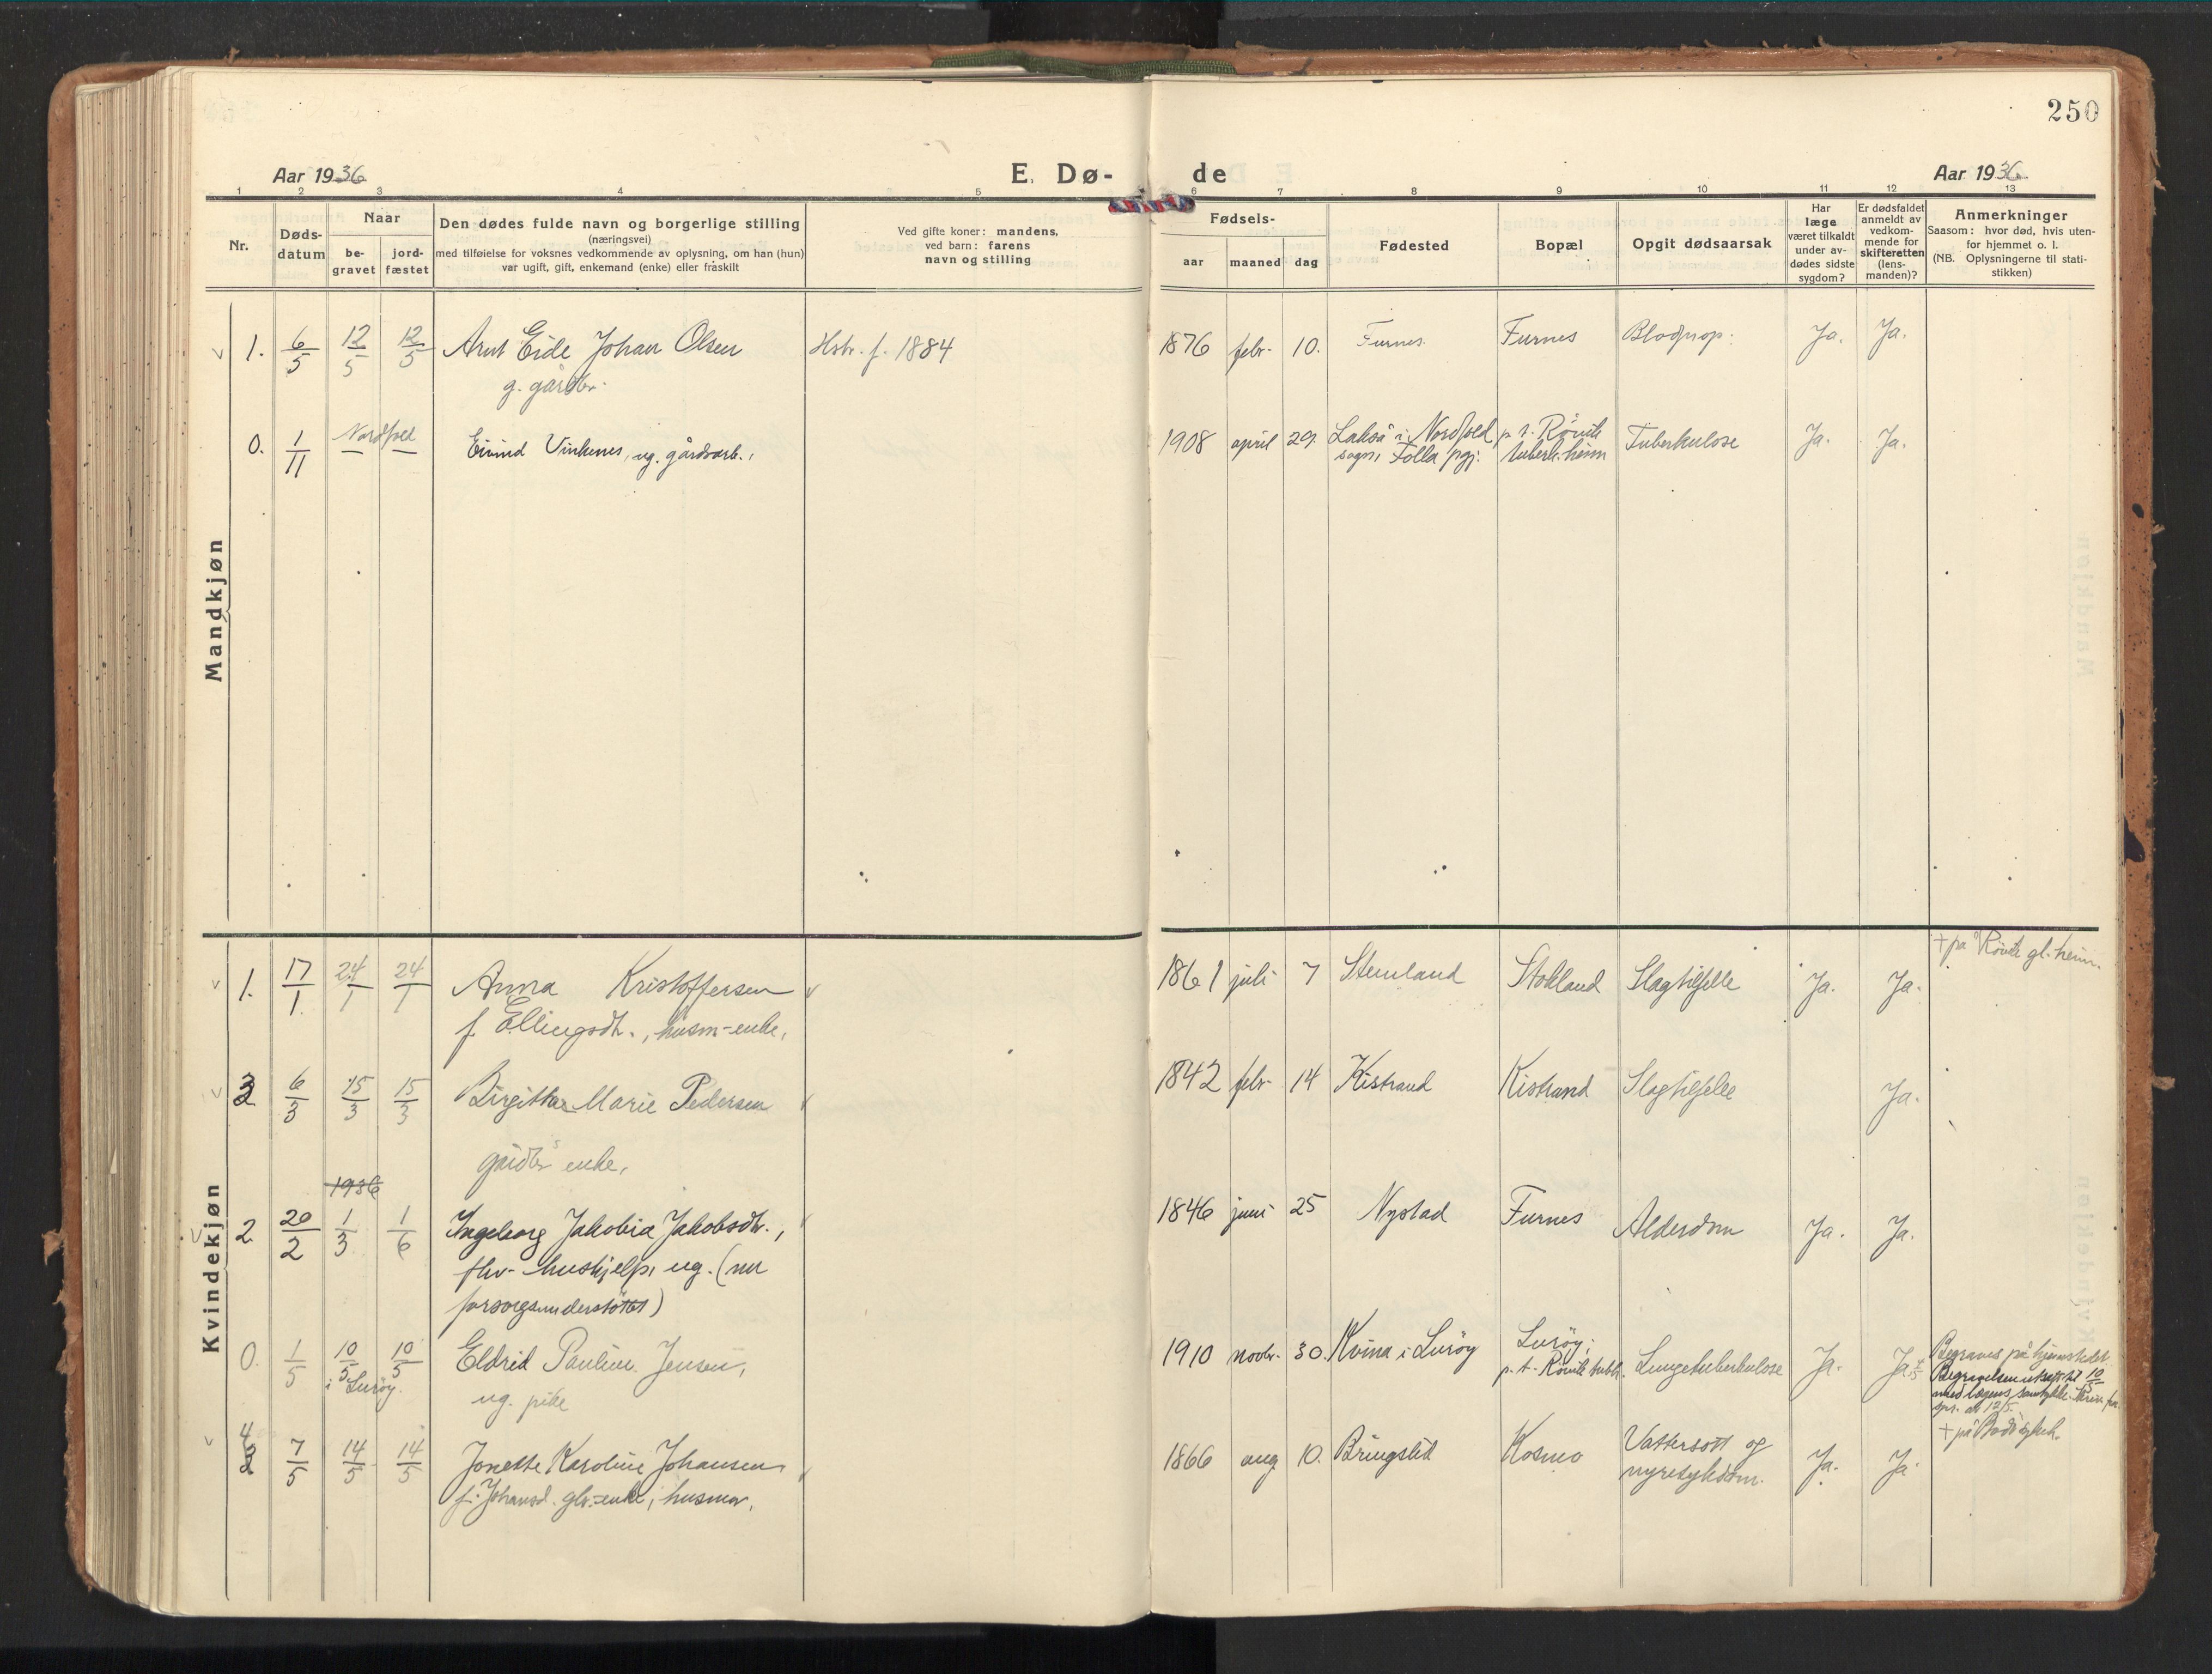 250
Aar 1936
E. Dø-
de
Aar 1936
1 2 3 4 5 6 7 8 9 10 11 12 13
Nr.
Døds-
datum
Naar
be-
gravet
jord-
fæstet
Den dødes fulde navn og borgerlige stilling
(næringsvei)
med tilføielse for voksnes vedkommende av oplysning, om han (hun)
var ugift, gift, enkemand (enke) eller fraskilt
Ved gifte koner: mandens,
ved barn: farens
navn og stilling
Fødsels-
aar
maaned
dag
Fødested
Bopæl
Opgit dødsaarsak
Har
læge
været tilkaldt
under av-
dødes sidste
sygdom?
Er dødsfaldet
anmeldt av
vedkom-
mende for
skifteretten
(lens-
manden)?
Anmerkninger
Saasom: hvor død, hvis uten-
for hjemmet o. l.
(NB. Oplysningerne til stati-
stikken)
Mandkjøn
1. 6/5 12/5 12/5 Arnt Eide Johan Olsen Hstr. f. 1884 1876 febr. 10. Furnes. Furnes Blodprop. Ja. Ja.
g. gårdbr.
0. 1/11 Nordfold Eivind Vinkenes, ug. gårdsarb., 1908 april 29. Lakså i Nordfold p. t. Rönvik Tuberkulose Ja. Ja.
sogn, Folla pgj. tuberk.heim
Kvindekjøn
+ på Rönvik gl. heim.
1. 17/1 24/1 24/1 Anna Kristoffersen 1861 juli 7 Stemland Stokland Slagtilfelle Ja. Ja.
f. Ellingsdt., husm-enke,
3 6/3 15/3 15/3 Birgitha Marie Pedersen 1842 febr. 14 Kistrand Kistrand Slagtilfelle Ja.
gårdbrs enke,
1936
2 20/2 1/3 1/6 Ingeborg Jakobia Jakobsdtr., 1846 juni 25 Nystad Furnes Alderdom Ja. Ja.
fhv. hushjelp, ug. (nu
forsorgsunderstöttet)
0. 1/5 10/5 10/5 Eldrid Pauline Jensen, 1910 novbr. 30. Kvina i Luröy Luröy; Lungetuberkulose Ja. Ja
i Luröy.
p. t. Rönvik tubh.
ug. pike
Begraves på hjemstedet.
Begravelsen utsatt til 10/5
med lægens samtykke.
+ på Bodö sykeh.
4 7/5 14/5 14/5 Jonette Karoline Johansen 1866 aug 10. Bringslid Kosmo Vattersott og Ja. Ja.
nyresykdom.
f. Johansd. gbr.-enke, husmor,